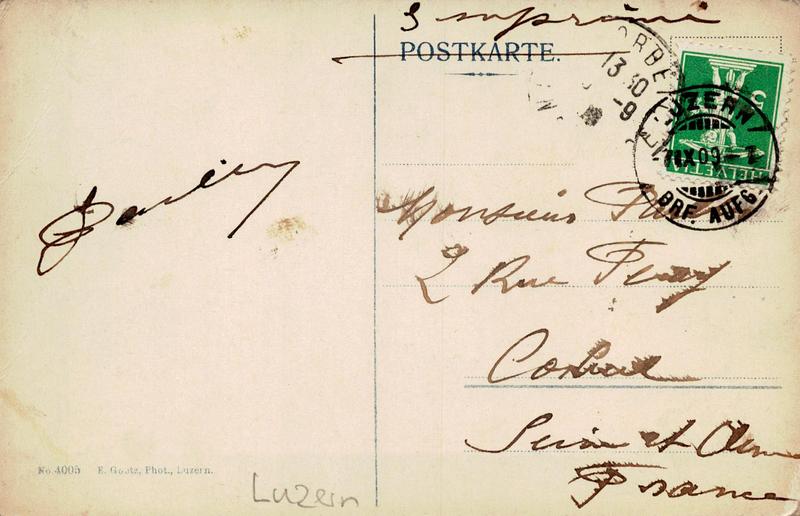 Imprimé
POSTKARTE.
ORBE
13 30
-9
LUZERN
IX 09
BRF. AUFG.
5
HELVETIA
Monsieur
2 Rue
Corbeil
Seine et Oise
France
No. 4005 E. Goetz, Phot., Luzern.
Luzern